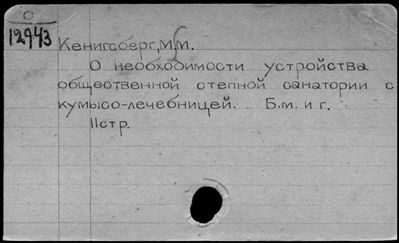 О
12943
Кенигсберг, М.М.
О необходимости устройства
общественной степной санатории с
кумысо-лечебницей. Б.м. и г.
11стр.